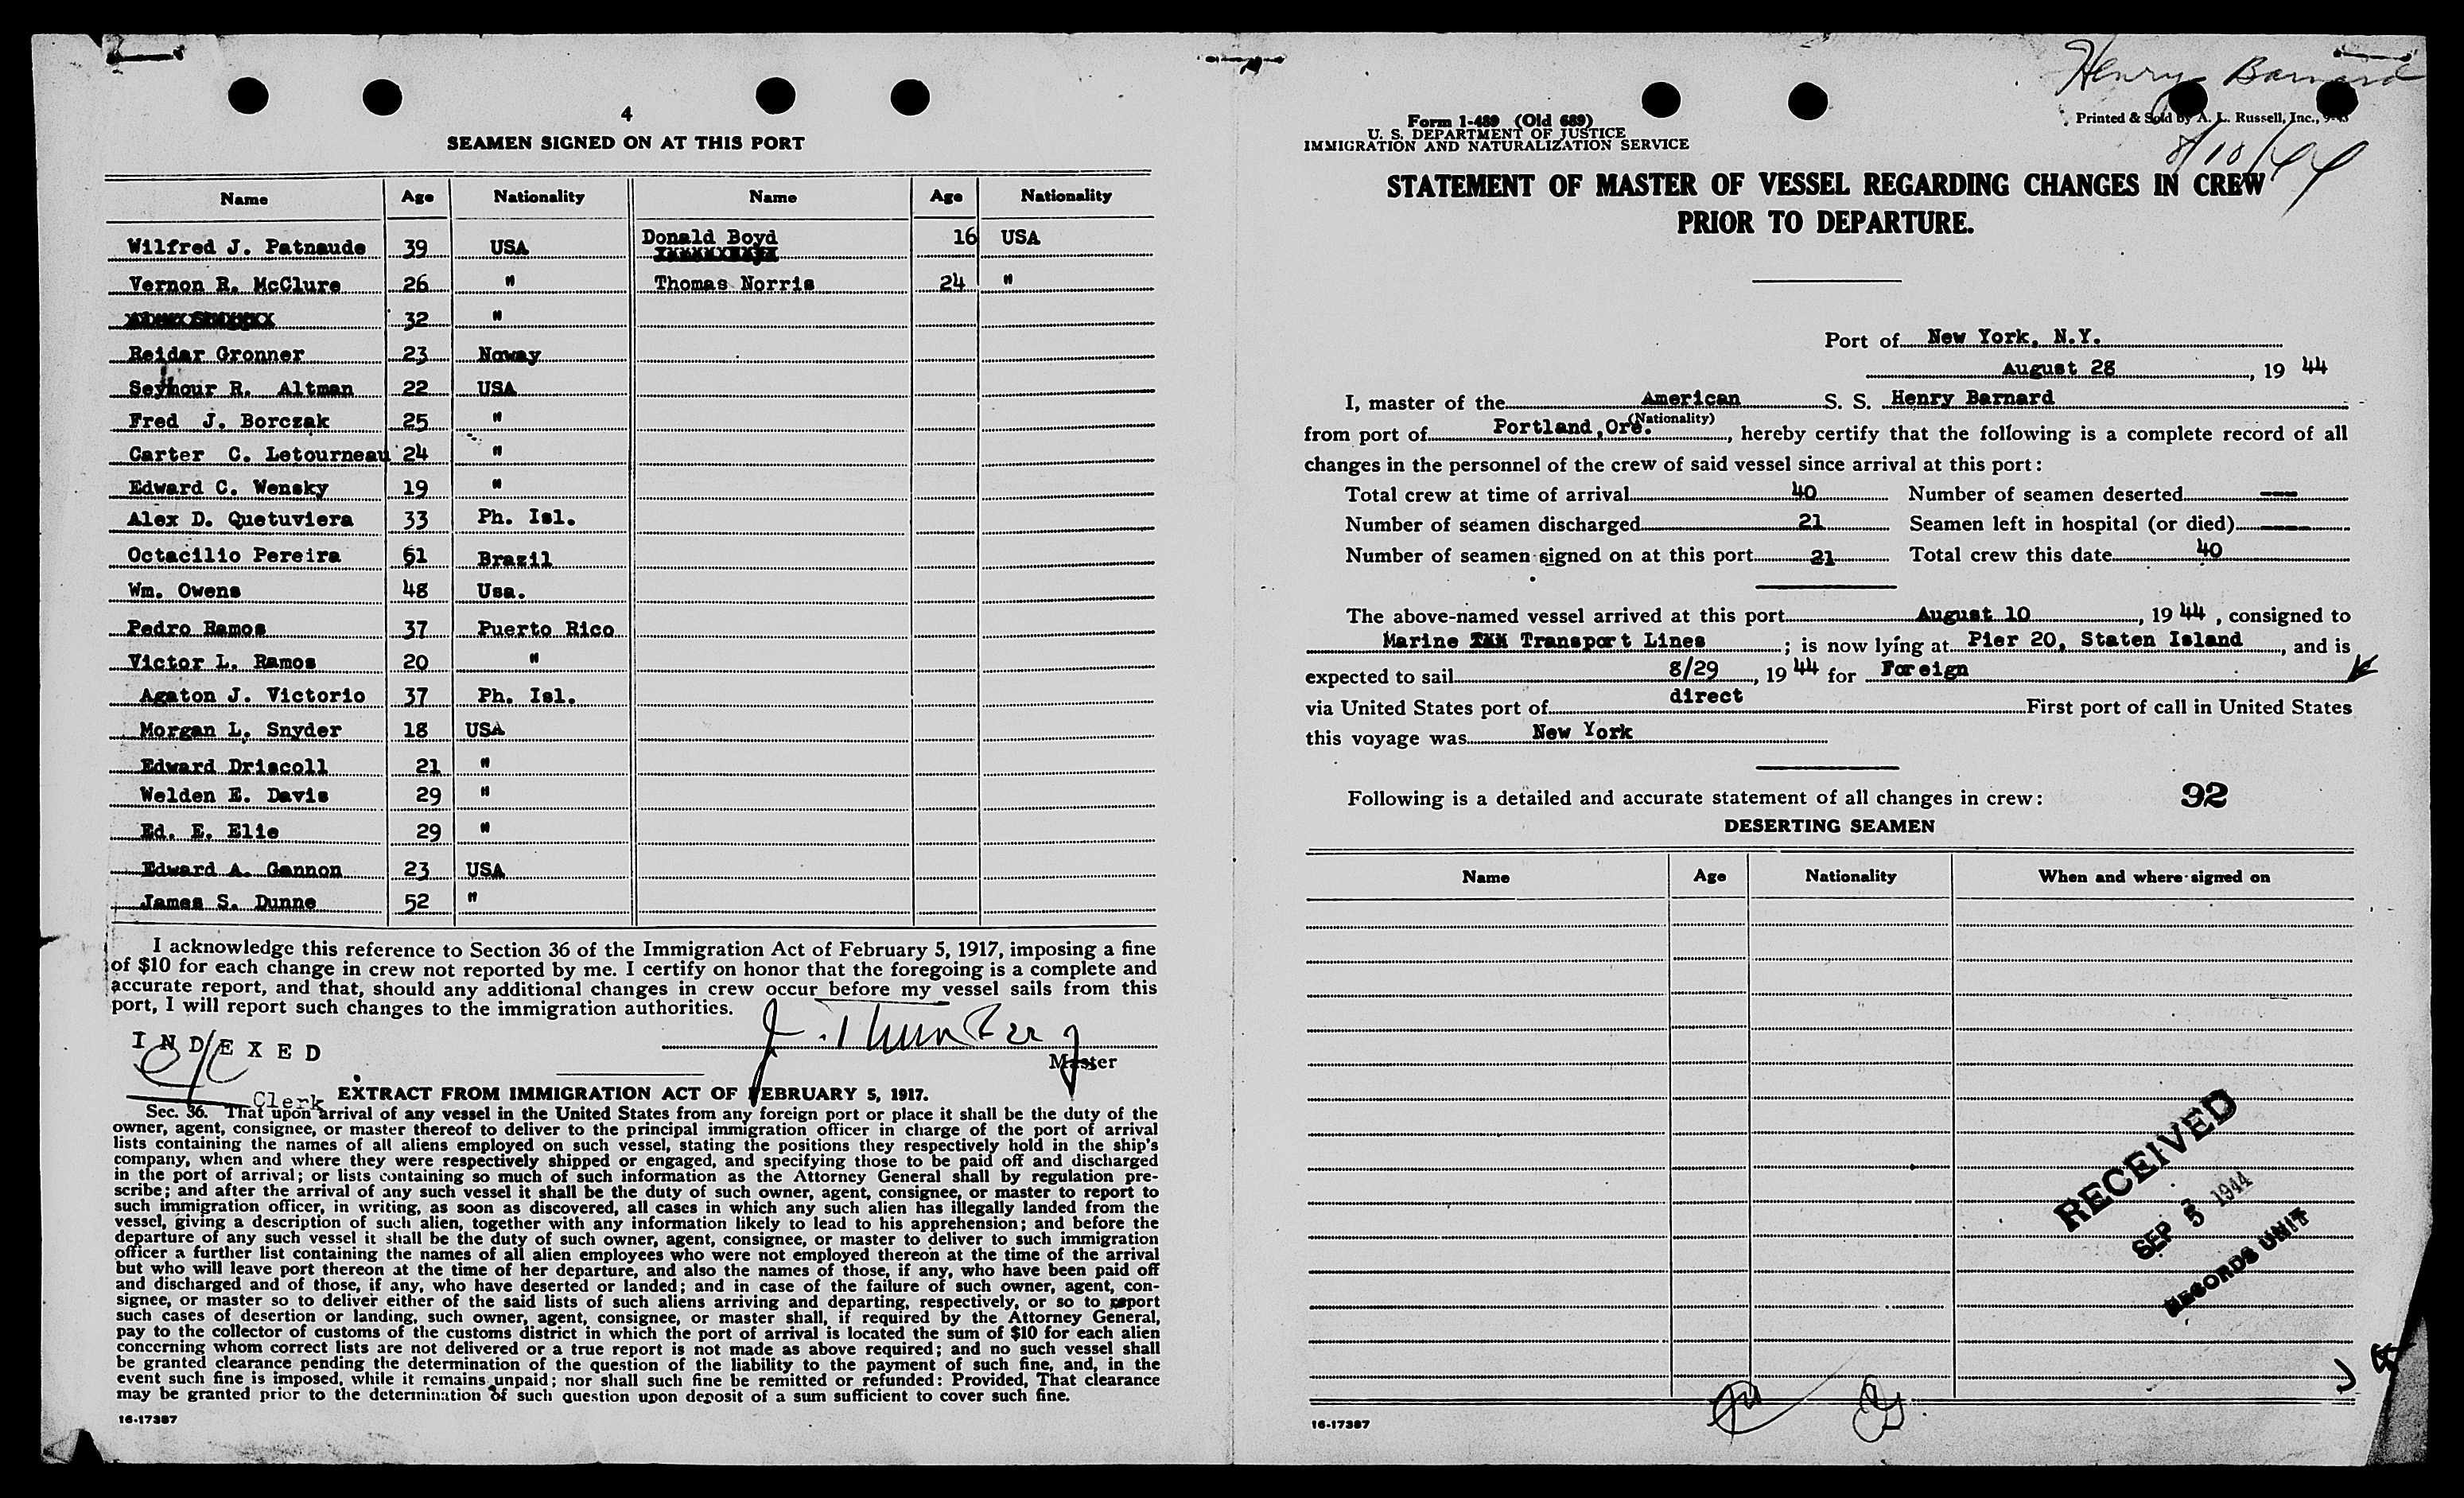 4
SEAMEN SIGNED ON AT THIS PORT
Name Age Nationality Name Age Nationality
Wilfred J. Patnaude 39 USA Donald Boyd 16 USA
Vernon R. McClure 26 " Thomas Norris 24 "
32 "
Reidar Gronner 23 Noway
Seymour R. Altman 22 USA
Fred J. Borczak 25 "
Carter C. Letourneau 24 "
Edward C. Wensky 19 "
Alex D. Quetuviera 33 Ph. Isl.
Octacilio Pereira 61 Brazil
Wm. Owens 48 Usa.
Pedro Ramos 37 Puerto Rico
Victor L. Ramos 20 "
Agaton J. Victorio 37 Ph. Isl.
Morgan L. Snyder 18 USA
Edward Driscoll 21 "
Welden E. Davis 29 "
Ed. E. Elie 29 "
Edward A. Gannon 23 USA
James S. Dunne 52 "
I acknowledge this reference to Section 36 of the Immigration Act of February 5, 1917, imposing a fine
of $10 for each change in crew not reported by me. I certify on honor that the foregoing is a complete and
accurate report, and that, should any additional changes in crew occur before my vessel sails from this
port, I will report such changes to the immigration authorities.
INDEXED
J. Thunberg
Master
Clerk
EXTRACT FROM IMMIGRATION ACT OF FEBRUARY 5, 1917.
Sec. 36. That upon arrival of any vessel in the United States from any foreign port or place it shall be the duty of the
owner, agent, consignee, or master thereof to deliver to the principal immigration officer in charge of the port of arrival
lists containing the names of all aliens employed on such vessel, stating the positions they respectively hold in the ship's
company, when and where they were respectively shipped or engaged, and specifying those to be paid off and discharged
in the port of arrival; or lists containing so much of such information as the Attorney General shall by regulation pre-
scribe; and after the arrival of any such vessel it shall be the duty of such owner, agent, consignee, or master to report to
such immigration officer, in writing, as soon as discovered, all cases in which any such alien has illegally landed from the
vessel, giving a description of such alien, together with any information likely to lead to his apprehension; and before the
departure of any such vessel it shall be the duty of such owner, agent, consignee, or master to deliver to such immigration
officer a further list containing the names of all alien employees who were not employed thereon at the time of the arrival
but who will leave port thereon at the time of her departure, and also the names of those, if any, who have been paid off
and discharged and of those, if any, who have deserted or landed; and in case of the failure of such owner, agent, con-
signee, or master so to deliver either of the said lists of such aliens arriving and departing, respectively, or so to report
such cases of desertion or landing, such owner, agent, consignee, or master shall, if required by the Attorney General,
pay to the collector of customs of the customs district in which the port of arrival is located the sum of $10 for each alien
concerning whom correct lists are not delivered or a true report is not made as above required; and no such vessel shall
be granted clearance pending the determination of the question of the liability to the payment of such fine, and, in the
event such fine is imposed, while it remains unpaid; nor shall such fine be remitted or refunded: Provided, That clearance
may be granted prior to the determination of such question upon deposit of a sum sufficient to cover such fine.
16-17387
Henry Barnard
8/10/44
Form 1-489 (Old 689)
U. S. DEPARTMENT OF JUSTICE
IMMIGRATION AND NATURALIZATION SERVICE
Printed & Sold by A. L. Russell, Inc.,
STATEMENT OF MASTER OF VESSEL REGARDING CHANGES IN CREW
PRIOR TO DEPARTURE.
Port of New York, N.Y.
August 28, 19 44
I, master of the American S. S. Henry Barnard
(Nationality)
from port of Portland, Ore., hereby certify that the following is a complete record of all
changes in the personnel of the crew of said vessel since arrival at this port:
Total crew at time of arrival 40 Number of seamen deserted ---
Number of seamen discharged 21 Seamen left in hospital (or died) ---
Number of seamen signed on at this port 21 Total crew this date 40
The above-named vessel arrived at this port August 10, 19 44, consigned to
Marine Transport Lines; is now lying at Pier 20, Staten Island, and is
expected to sail 8/29, 19 44 for Foreign
via United States port of direct First port of call in United States
this voyage was New York
Following is a detailed and accurate statement of all changes in crew: 92
DESERTING SEAMEN
Name Age Nationality When and where signed on
RECEIVED
SEP 5 1944
RECORDS UNIT
16-17387